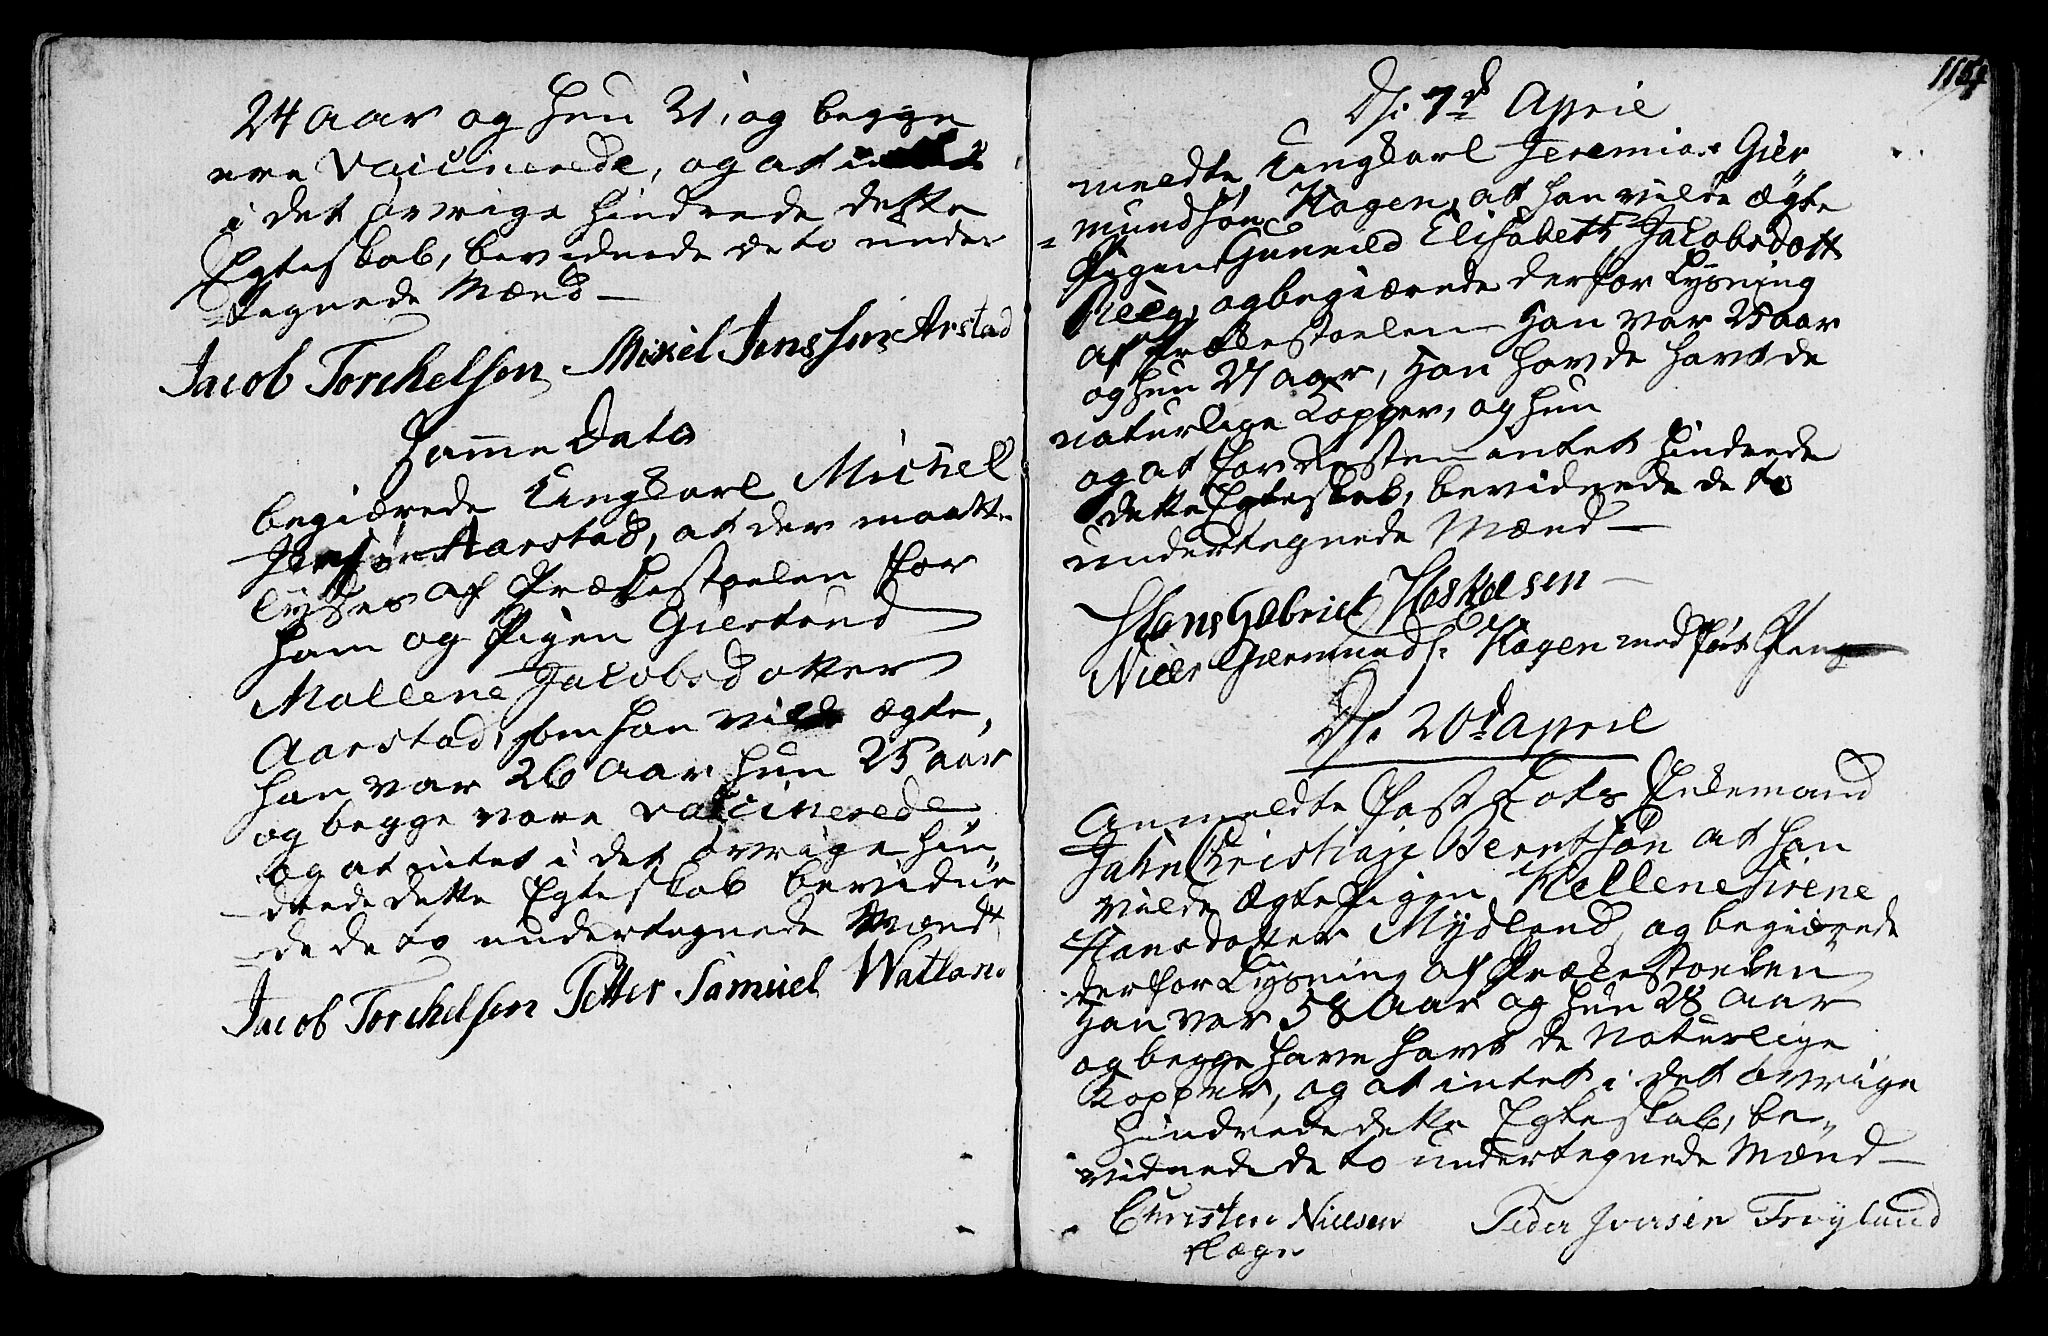 24 aar og hun 21, og begge
ere Vaccinerede, og at intet
i det övrige hindrede dette
Egteskab, bevidnede de to under
tegnede Mænd —
Jacob Torchelsen Mikel Jensen Arstad
Samme Dato
begiærede Ungkarl Michel
Jensön Aarstad, at der maatte
lyses af Prækestoelen for
ham og Pigen Giertrud
Mallene Jacobsdotter
Aarstad, som han vilde ægte,
han var 26 Aar hun 25 aar
og begge vare vaccinerede
og at intet i det övrige hin„
drede dette Egteskab bevidne
de de to undertegnede Mænd
Jacob Torchelsen Petter Samuel Watland
114
D. 7d April
meldte Ungkarl Jeremias Gier„
mundsön Hagen, at han vilde ægte
Pigen Gunnild Elisabeth Jacobsdott
og begiærede derfor Lysning
af Prækestoelen Han var 25 aar
og hun 27 aar, Han havde havt de
naturlige Kopper, og hun
og at for Resten intet hindrede
dette Egteskab, bevidnede de to
undertegnede Mænd —
Hans Gabriel Æskelsen —
Niels Giermunds. Hagen medført Pen
D. 20d April
Anmeldte Enkemand
Jahn Christian Berntsön at han
vilde ægte Pigen Hellene Sirene
Hansdotter Mydland, og begiærede
derfor Lysning af Prækestoelen
Han var 58 Aar og hun 28 Aar
og begge have havt de Naturlige
Kopper, og at intet i det övrige
hindrede dette Egteskab, be„
vidnede de to undertegnede Mænd —
Christen Nielsen Peder Iversen Tröyland
Hægn